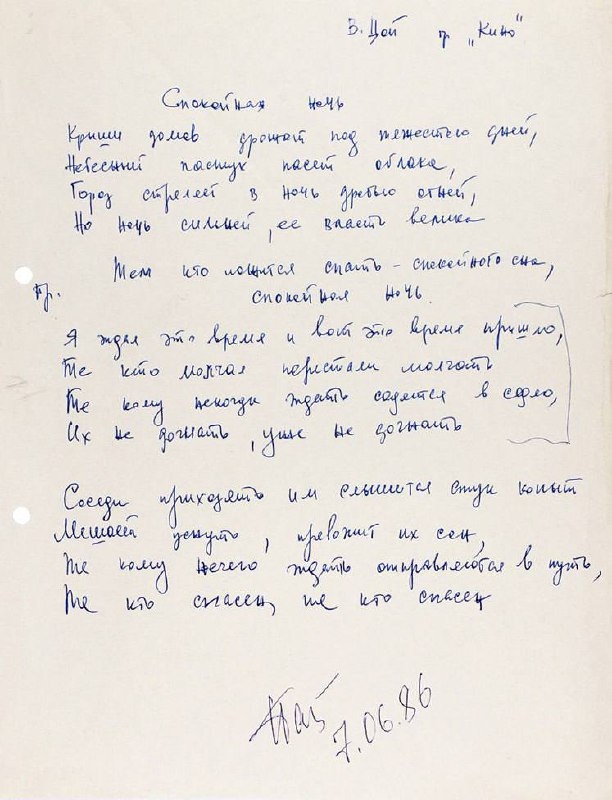 В. Цой гр „Кино"
Спокойная ночь
Крыши домов дрожат под тяжестью дней,
Небесный пастух пасет облака,
Город стреляет в ночь дробью огней,
Но ночь сильней, ее власть велика
Тем кто ложится спать – спокойного сна,
Пр. спокойная ночь.
Я ждал это время и вот это время пришло,
Те кто молчал перестали молчать
Те кому некогда ждать садятся в седло,
Их не догнать, уже не догнать
Соседи приходят им слышится стук копыт
Мешает уснуть, тревожит их сон,
Те кому нечего ждать отправляются в путь,
Те кто спасен, те кто спасен
Цой
7.06.86